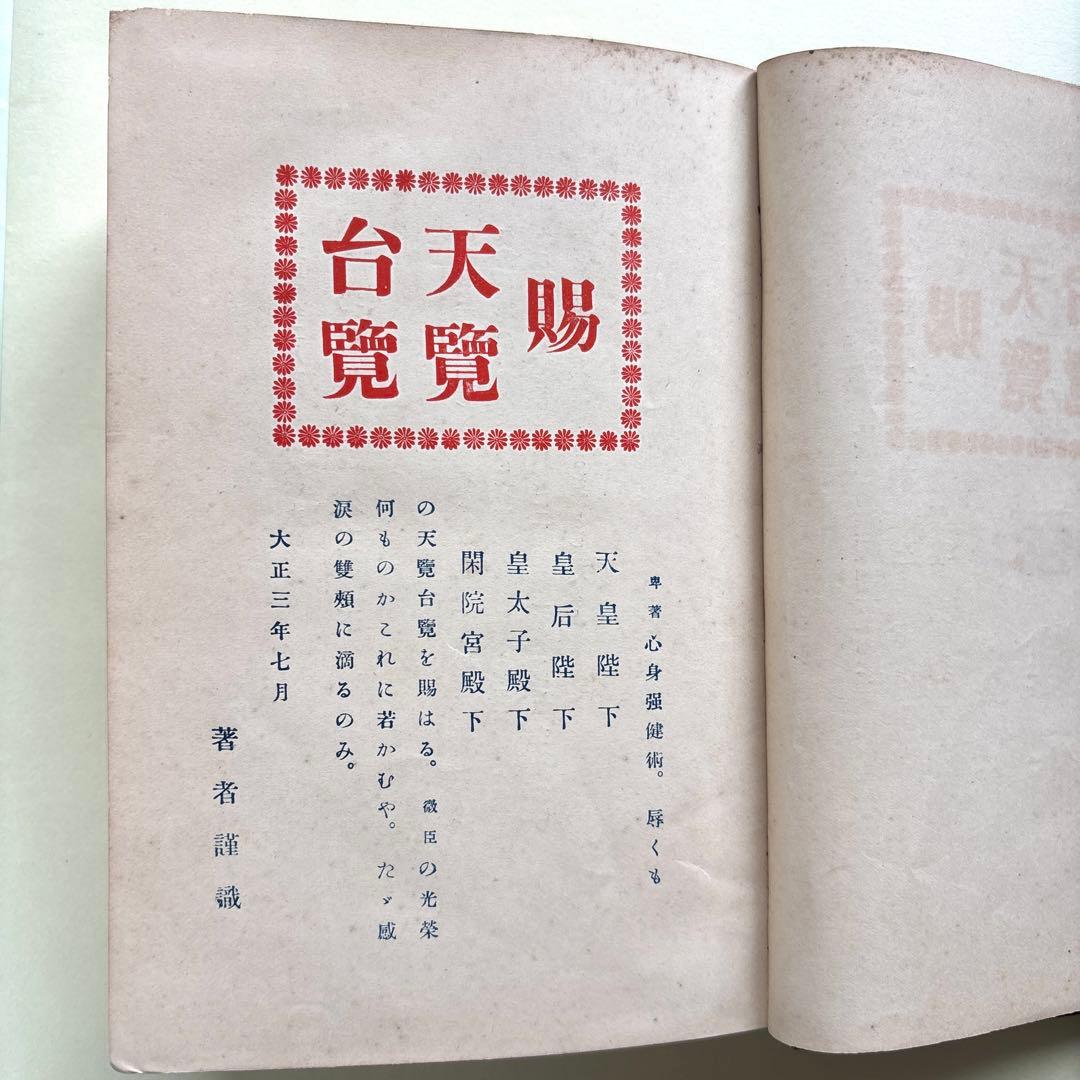 賜
天覽
台覽
卑著心身强健術。辱くも
天皇陛下
皇后陛下
皇太子殿下
閑院宮殿下
の天覽台覽を賜はる。微臣の光榮
何ものかこれに若かむや。たゞ感
淚の雙頰に滴るのみ。
大正三年七月
著者謹識